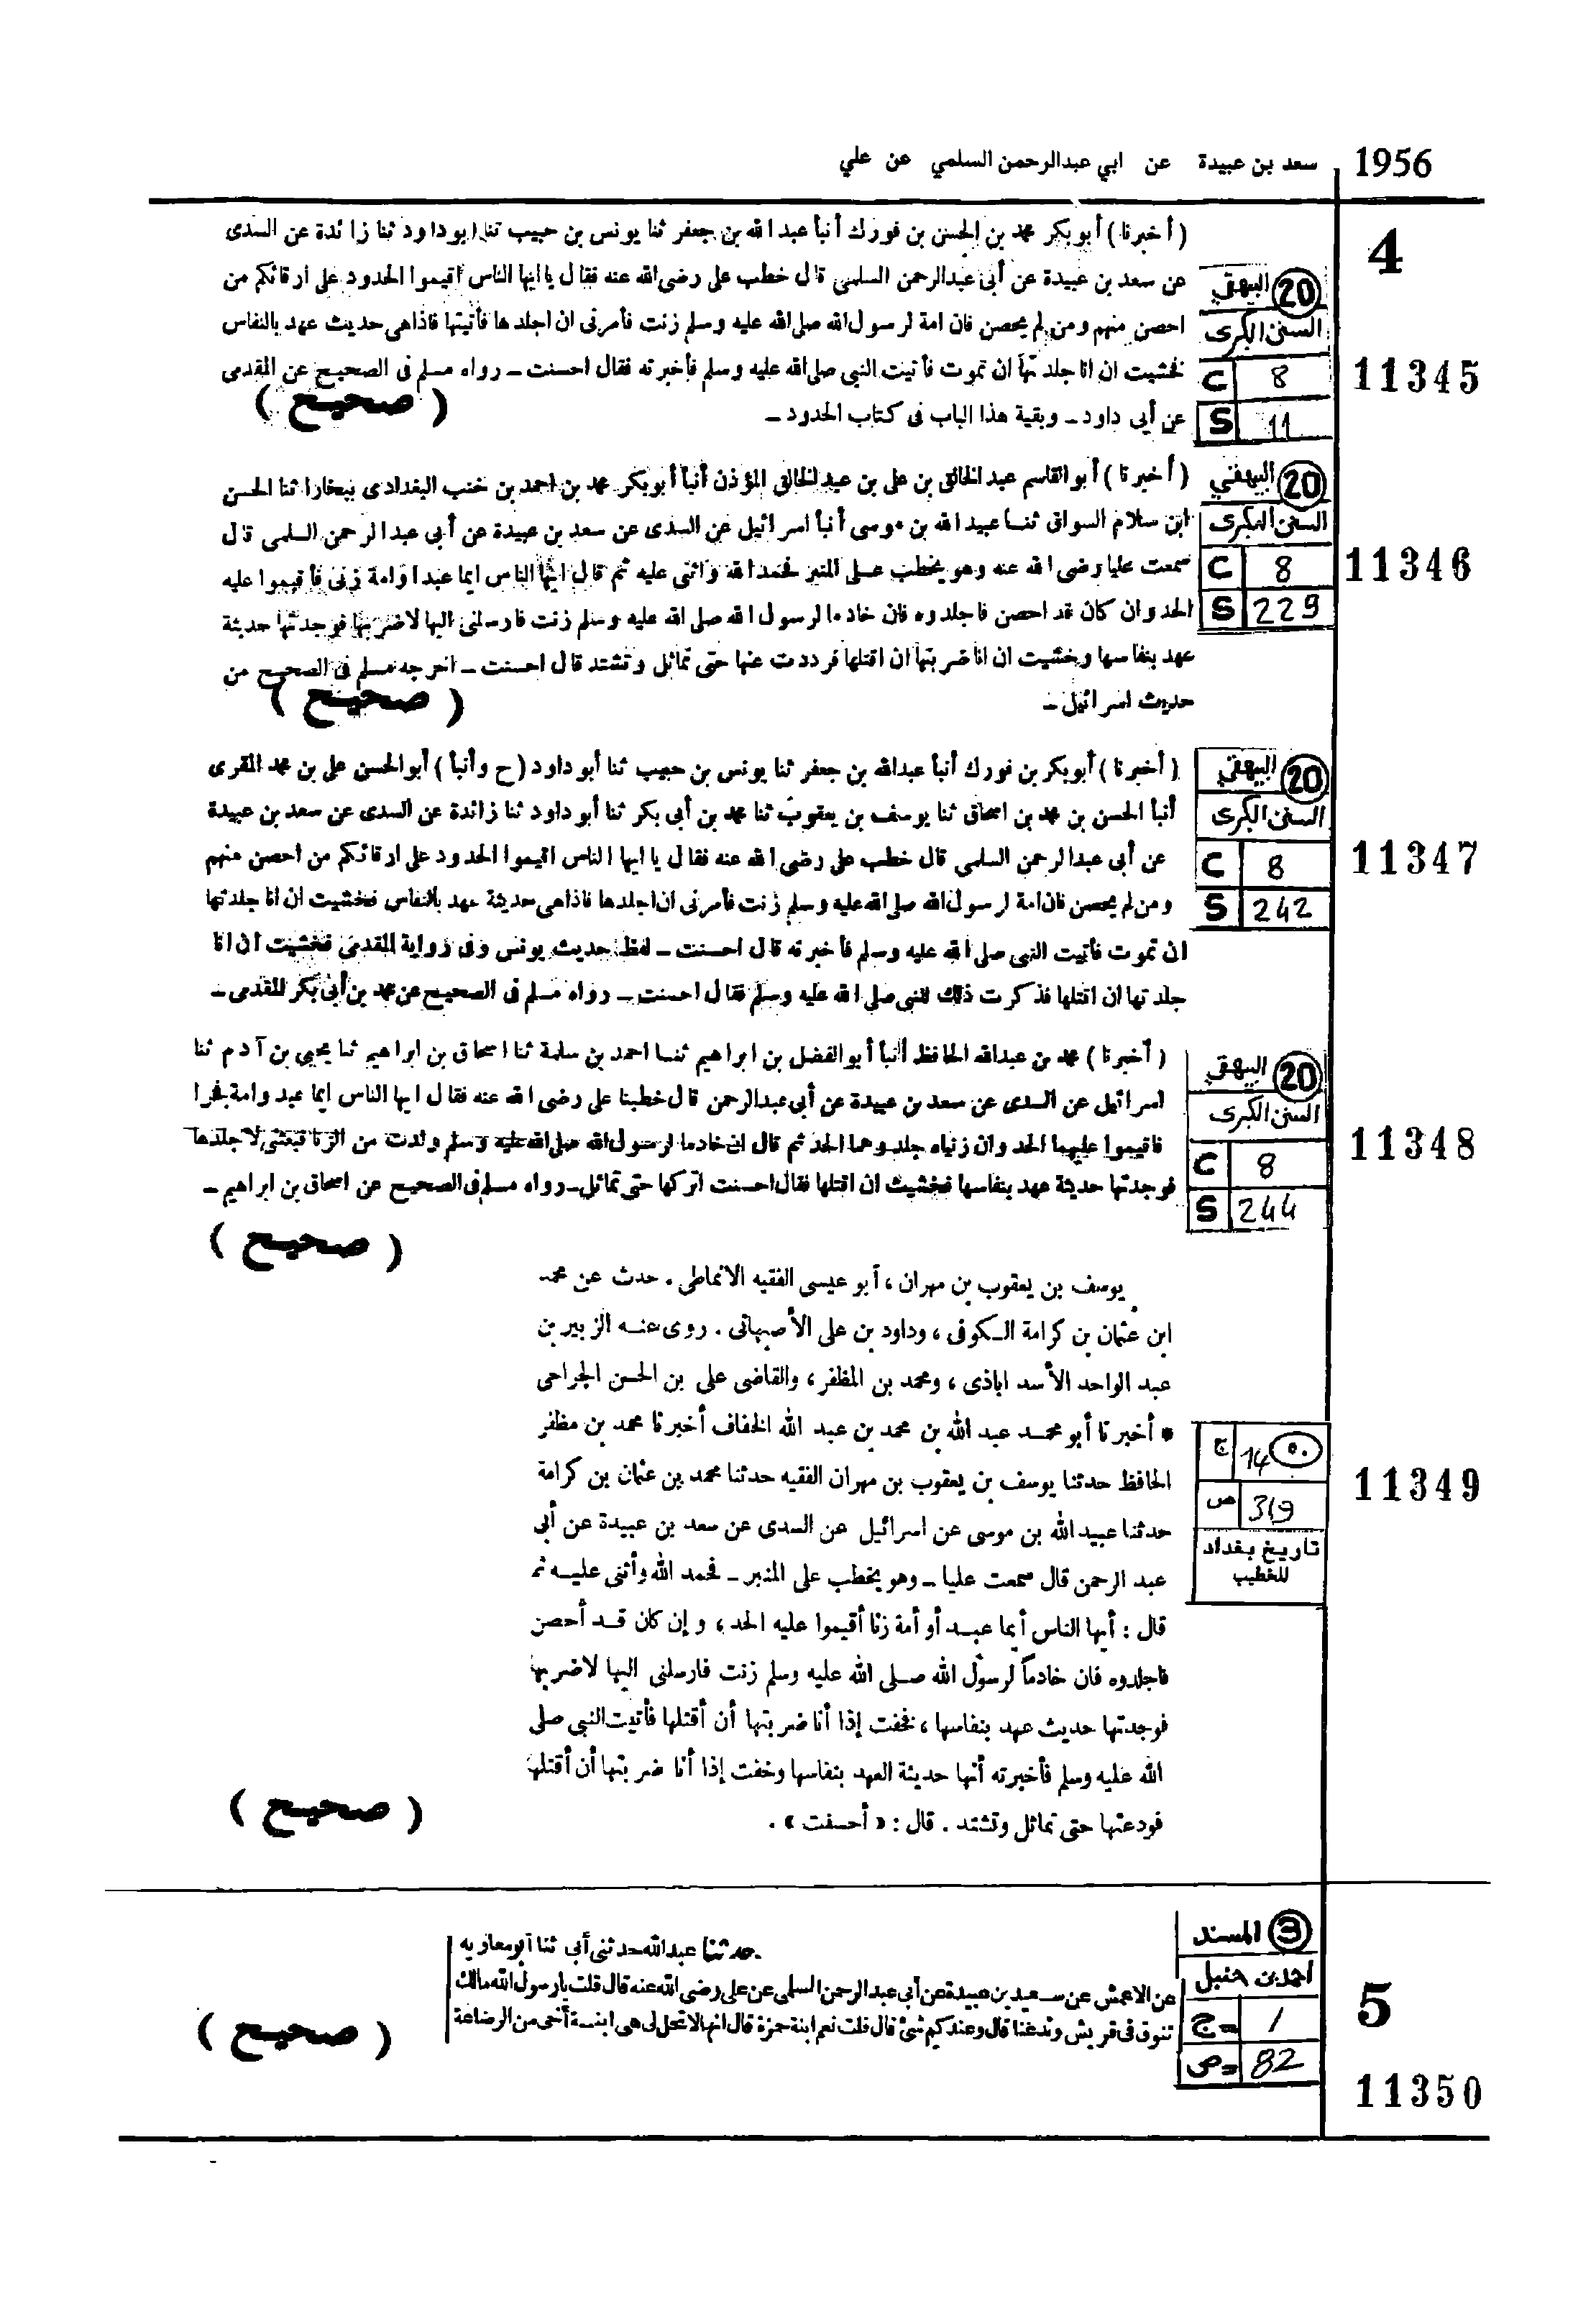 1956 سعد بن عبيدة عن ابي عبدالرحمن السلمي عن علي
4
(أخبرنا) أبو بكر محمد بن الحسن بن فورك أنبأ عبد الله بن جعفر ثنا يونس بن حبيب ثنا ابو داود ثنا زائدة عن السدى
عن سعد بن عبيدة عن أبى عبدالرحمن السلمى قال خطب على رضى الله عنه فقال يا ايها الناس اقيموا الحدود على ارقائكم من
احصن منهم ومن لم يحصن فان امة لرسول الله صلى الله عليه وسلم زنت فأمرنى ان اجلدها فأتيتها فاذا هى حديث عهد بالنفاس
فخشيت ان انا جلدتها ان تموت فأتيت النبى صلى الله عليه وسلم فأخبرته فقال احسنت ـ رواه مسلم فى الصحيح عن المقدمى
عن أبى داود ـ وبقية هذا الباب فى كتاب الحدود ـ
( صحيح )
20 البيهقي
السنن الكبرى
C 8
S 11
11345
(أخبرنا) أبو القاسم عبد الخالق بن على بن عبد الخالق المؤذن أنبأ أبو بكر محمد بن احمد بن خنب البغدادى ببخارا ثنا الحسن
ابن سلام السواق ثنا عبيد الله بن موسى أنبأ اسرائيل عن السدى عن سعد بن عبيدة عن أبى عبد الرحمن السلمى قال
سمعت عليا رضى الله عنه وهو يخطب على المنبر فحمد الله واثنى عليه ثم قال ايها الناس ايما عبد او امة زنى فأقيموا عليه
الحد وان كان قد احصن فاجلدوه فان خادما لرسول الله صلى الله عليه وسلم زنت فارسلنى اليها لاضربها فوجدتها حديثة
عهد بنفاسها وخشيت ان انا ضربتها ان اقتلها فرددت عنها حتى تماثل وتشتد قال احسنت ـ اخرجه مسلم فى الصحيح من
حديث اسرائيل ـ
( صحيح )
20 البيهقي
السنن الكبرى
C 8
S 229
11346
(أخبرنا) أبو بكر بن فورك أنبأ عبدالله بن جعفر ثنا يونس بن حبيب ثنا أبو داود (ح وأنبأ) أبو الحسن على بن محمد المقرى
أنبأ الحسن بن محمد بن اسحاق ثنا يوسف بن يعقوب ثنا محمد بن أبى بكر ثنا أبو داود ثنا زائدة عن السدى عن سعد بن عبيدة
عن أبى عبد الرحمن السلمى قال خطب على رضى الله عنه فقال يا ايها الناس اقيموا الحدود على ارقائكم من احصن منهم
ومن لم يحصن فان امة لرسول الله صلى الله عليه وسلم زنت فأمرنى ان اجلدها فاذا هى حديثة عهد بالنفاس فخشيت ان انا جلدتها
ان تموت فأتيت النبى صلى الله عليه وسلم فأخبرته قال احسنت ـ لفظ حديث يونس وفى رواية المقدمى فخشيت ان انا
جلدتها ان اقتلها فذكرت ذلك للنبى صلى الله عليه وسلم فقال احسنت ـ رواه مسلم فى الصحيح عن محمد بن أبى بكر المقدمى ـ
20 البيهقي
السنن الكبرى
C 8
S 242
11347
(أخبرنا) محمد بن عبدالله الحافظ أنبأ أبو الفضل بن ابراهيم ثنا احمد بن سلمة ثنا اسحاق بن ابراهيم ثنا يحيى بن آدم ثنا
اسرائيل عن السدى عن سعد بن عبيدة عن أبى عبدالرحمن قال خطبنا على رضى الله عنه فقال ايها الناس ايما عبد وامة فجرا
فاقيموا عليهما الحد وان زنياه جلدوهما الحد ثم قال ان خادما لرسول الله صلى الله عليه وسلم ولدت من الزنا فبعثنى لاجلدها
فوجدتها حديثة عهد بنفاسها فخشيت ان اقتلها فقال احسنت اتركها حتى تماثل ـ رواه مسلم فى الصحيح عن اسحاق بن ابراهيم ـ
( صحيح )
20 البيهقي
السنن الكبرى
C 8
S 244
11348
يوسف بن يعقوب بن مهران ، أبو عيسى الفقيه الانماطى . حدث عن محمد
ابن عثمان بن كرامة الكوفى ، وداود بن على الأصبهانى . روى عنه الزبير بن
عبد الواحد الأسداباذى ، ومحمد بن المظفر ، والقاضى على بن الحسن الجراحى
* أخبرنا أبو محمد عبد الله بن محمد بن عبد الله الخفاف أخبرنا محمد بن مظفر
الحافظ حدثنا يوسف بن يعقوب بن مهران الفقيه حدثنا محمد بن عثمان بن كرامة
حدثنا عبيد الله بن موسى عن اسرائيل عن السدى عن سعد بن عبيدة عن أبى
عبد الرحمن قال سمعت عليا ـ وهو يخطب على المنبر ـ فحمد الله وأثنى عليه ثم
قال : أيها الناس أيما عبد أو أمة زنا أقيموا عليه الحد ، وإن كان قد أحصن
فاجلدوه فان خادماً لرسول الله صلى الله عليه وسلم زنت فارسلنى اليها لاضربها
فوجدتها حديث عهد بنفاسها ، فخفت إذا أنا ضربتها أن أقتلها فأتيت النبى صلى
الله عليه وسلم فأخبرته أنها حديثة العهد بنفاسها وخفت إذا أنا ضربتها أن أقتلها
فودعتها حتى تماثل وتشتد . قال : « أحسنت » .
( صحيح )
٥٠ 14 ج
319 ص
تاريخ بغداد
للخطيب
11349
5
حدثنا عبدالله حدثنى أبى ثنا أبو معاوية
عن الاعمش عن سعيد بن عبيدة عن أبى عبد الرحمن السلمى عن على رضى الله عنه قال قلت يا رسول الله مالك
تنوق فى قريش وتدعنا قال وعندكم شئ قال قلت نعم ابنة حمزة قال انها لا تحل لى هى ابنة أخى من الرضاعة
( صحيح )
3 المسند
احمد بن حنبل
ج= 1
ص= 82
11350